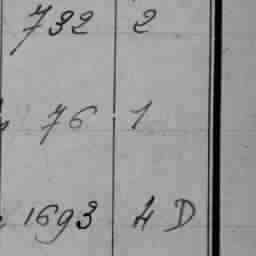 732 2
76 1
1693 4 D